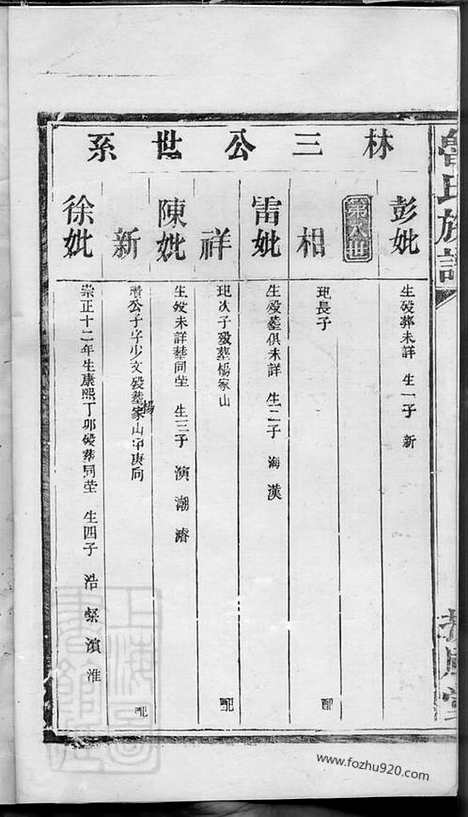 林三公世系
彭妣
生殁葬未詳 生一子 新
第八世
相
玘長子
配
雷妣
生殁墓俱未詳 生二子 海 漢
祥
玘次子殁葬楊家山
配
陳妣
生殁未詳葬同塋 生三子 演 潮 濬
新
公子字少文殁墓楊家山
配
徐妣
崇正十二年生康熙丁卯殁葬同塋 生四子 浩 濱 淮
氏族譜
上海圖
www.fozhu920.com